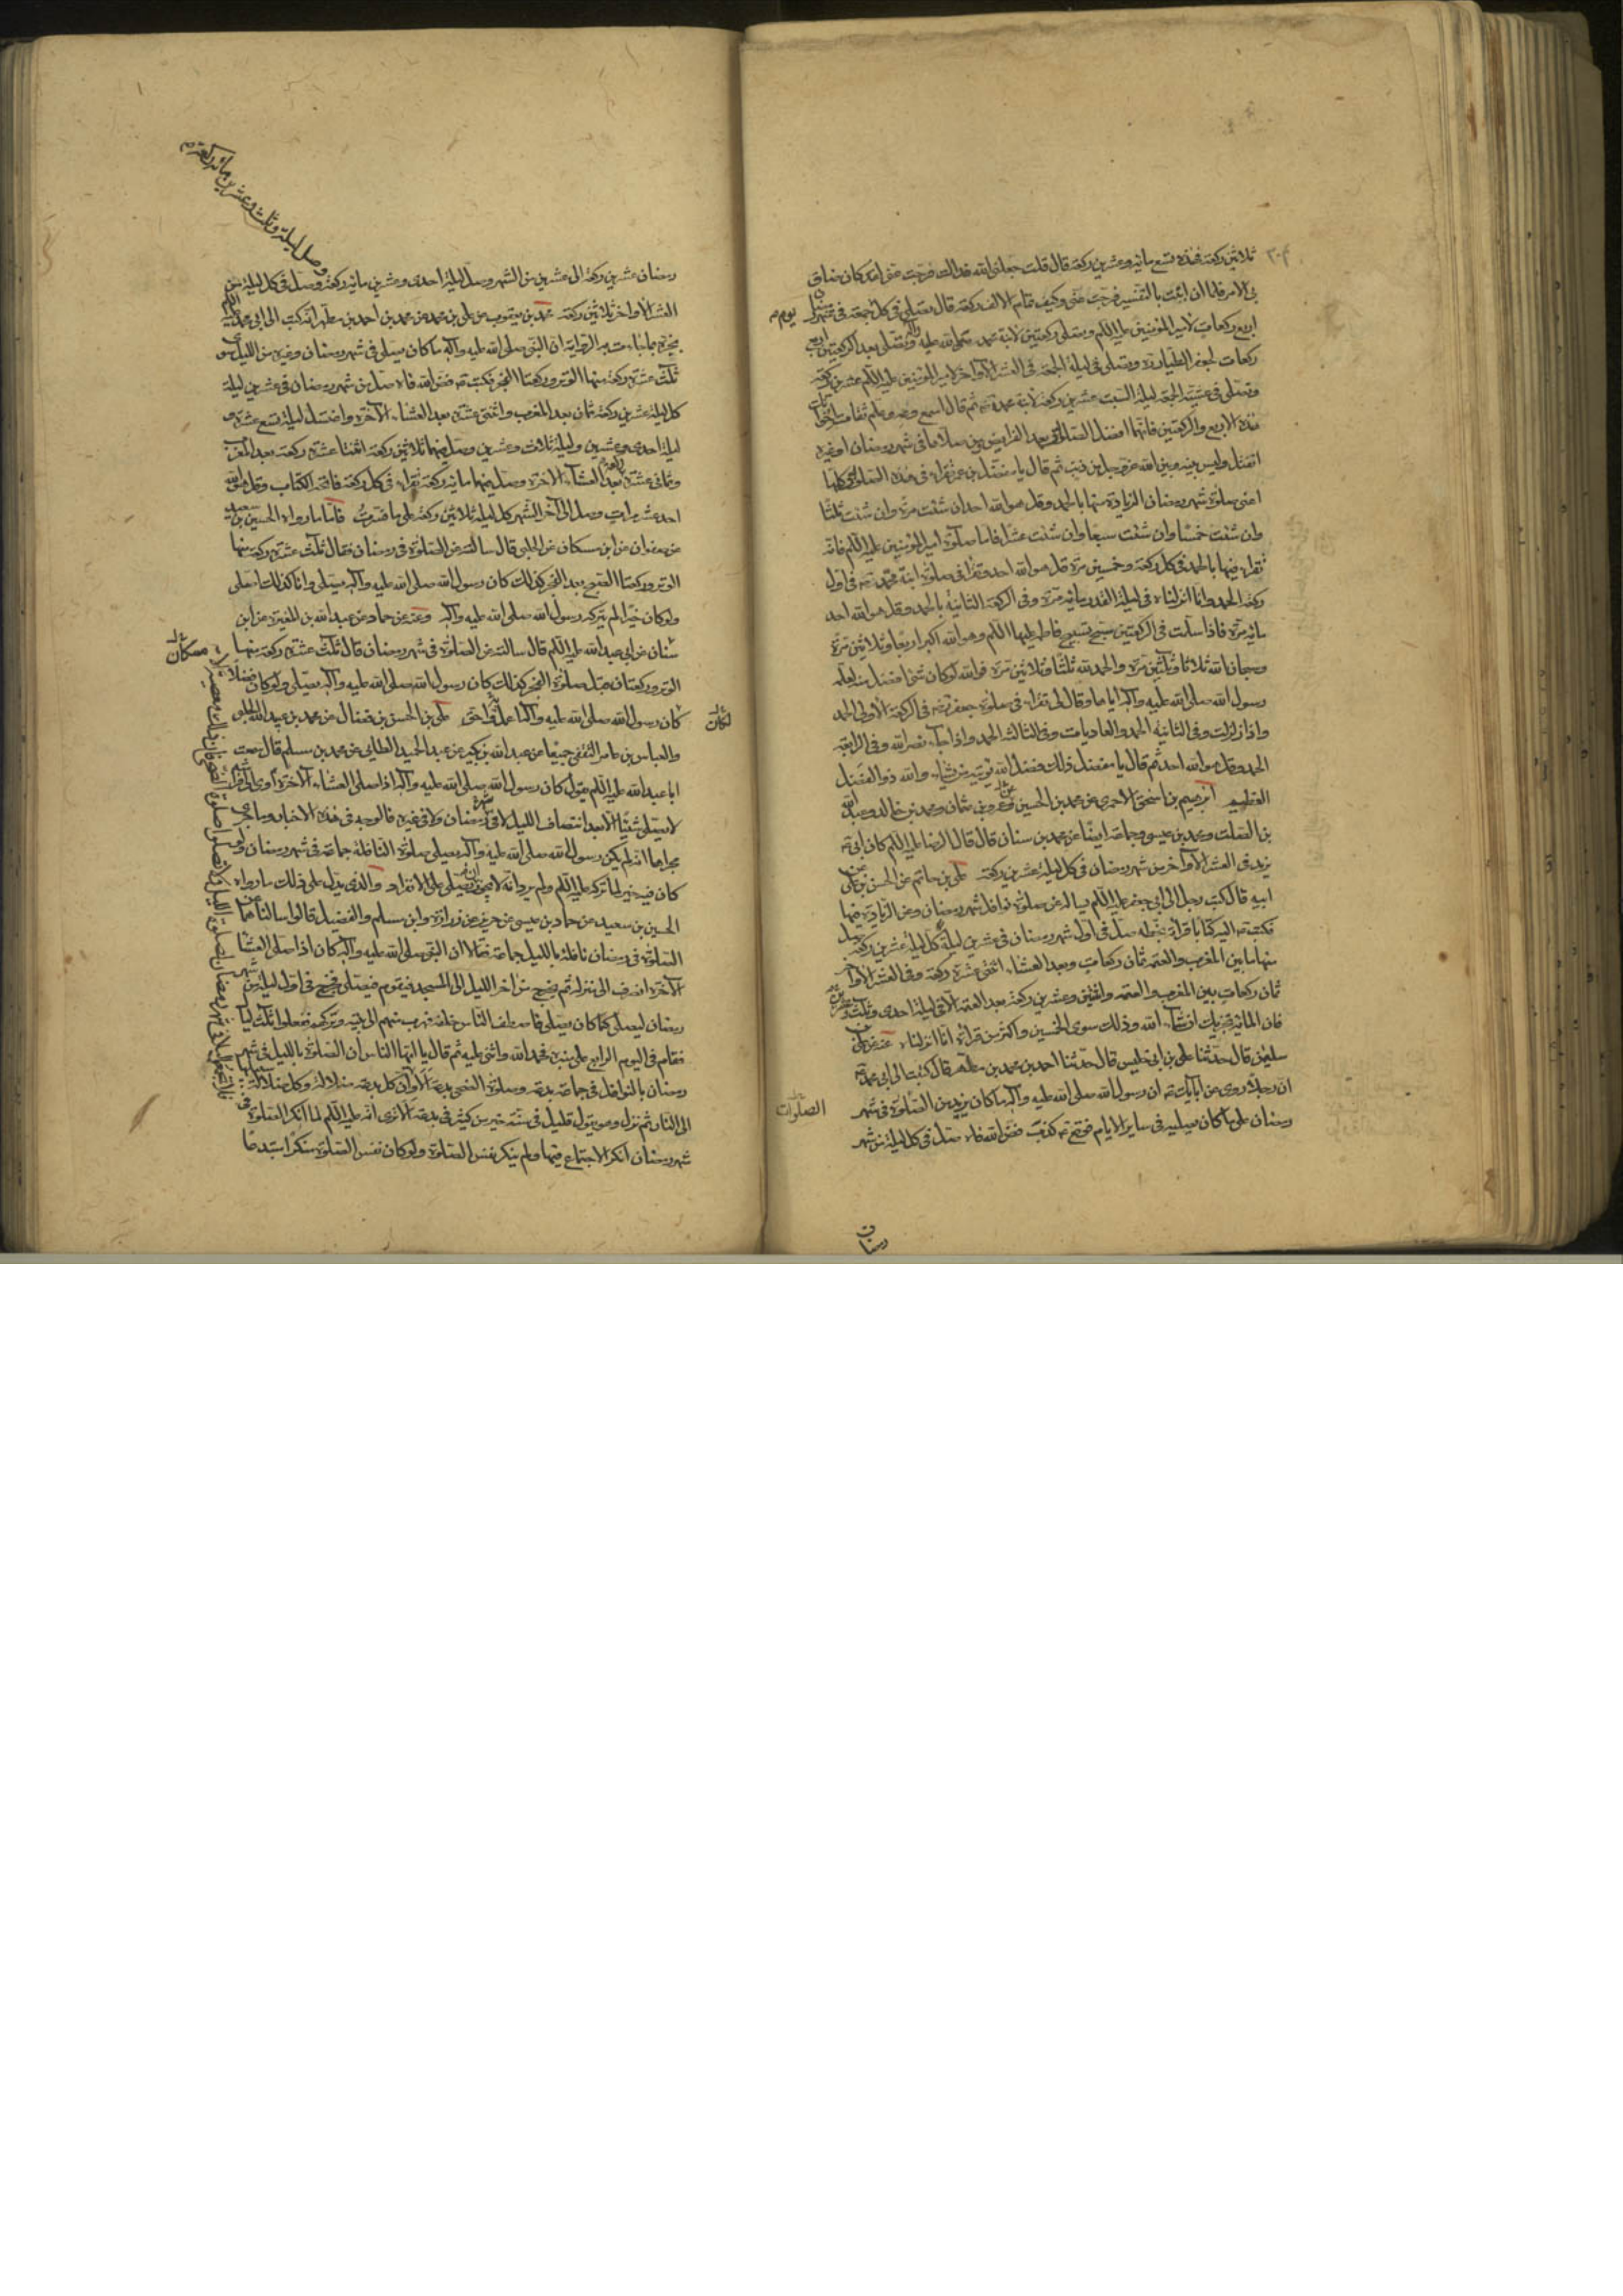 ثلاثين ركعة فهذه تسع مائة وعشرين ركعة قال قلت جعلني الله فداك فرجت عني لقد كان ضاق
بي الامر فلما ان اتيت بالتفسير فرجت عني وكيف تمام الالف ركعة قال تصلي في كل جمعة في شهر
يوم
اربع ركعات لامير المؤمنين عليه السلم وتصلي ركعتين لابنة محمد صلى الله عليه وآله وتصلي بعد الركعتين اربع
ركعات لجعفر الطيار ره وتصلي في ليلة الجمعة في العشر الاواخر لامير المؤمنين عليه السلم عشرين ركعة
وتصلي في عشية الجمعة ليلة السبت عشرين ركعة لابنة محمد ثم قال اسمع وعه وعلم ثقات اخوانك
هذه الاربع والركعتين فانهما افضل الصلوات بعد الفرايض فمن صلاها في شهر رمضان او غيره
انفتل وليس بينه وبين الله عز وجل من ذنب ثم قال يا مفضل بن عمر تقراء في هذه الصلوات كلها
اعني صلوة شهر رمضان الزيادة منها بالحمد وقل هو الله احد ان شئت مرة وان شئت ثلثا
وان شئت خمسا وان شئت سبعا وان شئت عشرا فاما صلوة امير المؤمنين عليه السلم فانه
تقراء فيها بالحمد في كل ركعة وخمسين مرة قل هو الله احد وتقرأ في صلوة ابنة محمد في اول
ركعة الحمد وانا انزلناه في ليلة القدر مائة مرة وفي الركعة الثانية بالحمد وقل هو الله احد
مائة مرة فاذا سلمت في الركعتين سبح تسبيح فاطمة عليها السلم وهو الله اكبر اربعا وثلاثين مرة
وسبحان الله ثلاثا وثلثين مرة والحمد لله ثلثا وثلاثين مرة فوالله لو كان شئ افضل منه لعلمه
رسول الله صلى الله عليه وآله اياها وقال لي تقراء في صلوة جعفر في الركعة الاولى الحمد
واذا زلزلت وفي الثانية الحمد والعاديات وفي الثالثة الحمد واذا جاء نصر الله وفي الرابعة
الحمد وقل هو الله احد ثم قال يا مفضل ذلك فضل الله يؤتيه من يشاء والله ذو الفضل
العظيم ابرهيم بن اسحق الاحمري عن محمد بن الحسين وعمرو بن عثمان ومحمد بن خالد وعبد الله
بن الصلت ومحمد بن عيسى وجماعة ايضا عن محمد بن سنان قال قال الرضا عليه السلم كان ابي
يزيد في العشر الاواخر من شهر رمضان في كل ليلة عشرين ركعة علي بن حاتم عن الحسن بن علي عن
ابيه قال كتب رجل الى ابي جعفر عليه السلم يساله عن صلوة نوافل شهر رمضان وعن الزيادة فيها
فكتب اليه كتابا قرأته بخطه صل في اول شهر رمضان في عشرين ليلة كل ليلة عشرين ركعة صل
منها ما بين المغرب والعتمة ثمان ركعات وبعد العشاء اثنتي عشرة ركعة وفي العشر الاواخر
ثمان ركعات بين المغرب والعتمة واثنين وعشرين ركعة بعد العتمة الا في ليلة احدى وثلث وعشرين
فان المائة تجزيك ان شاء الله وذلك سوى الخمسين واكثر من قراءة انا انزلناه عنه عن علي بن
سليمن قال حدثنا علي بن ابي خليس قال حدثنا احمد بن محمد بن مطهر قال كتبت الى ابي محمد
ان رجلا روى عن آبائك ان رسول الله صلى الله عليه وآله ما كان يزيد من الصلوة في شهر
الصلوات
رمضان على ما كان يصليه في ساير الايام فوقع كذب فض الله فاه صل في كل ليلة من شهر
رمضان
وصل ليلة وثلث وعشرين مائة ركعة
رمضان عشرين ركعة الى عشرين من الشهر وصل ليلة احدى وعشرين مائة ركعة وصل في كل ليلة من
العشر الاواخر ثلاثين ركعة محمد بن يعقوب عن علي بن محمد عن محمد بن احمد بن مطهر انه كتب الى ابي محمد عليه السلم
يخبره بما جاءت به الرواية ان النبي صلى الله عليه وآله ما كان يصلي في شهر رمضان وغيره من الليل سوى
ثلث عشرة ركعة منها الوتر وركعتا الفجر فكتب فض الله فاه صل من شهر رمضان في عشرين ليلة
كل ليلة عشرين ركعة ثمان بعد المغرب واثنتي عشرة بعد العشاء الآخرة واغتسل ليلة تسع عشرة و
ليلة احدى وعشرين وليلة ثلاث وعشرين وصل فيهما ثلاثين ركعة اثنتا عشرة ركعة بعد المغرب
وثماني عشرة بعد العشاء الآخرة وصل فيهما مائة ركعة تقراء في كل ركعة فاتحة الكتاب وقل هو الله
احد عشر مرات وصل الى آخر الشهر كل ليلة ثلاثين ركعة على ما فسرت فاما ما رواه الحسين بن سعيد
عن صفوان عن ابن مسكان عن الحلبي قال سالته عن الصلوة في رمضان فقال ثلث عشرة ركعة منها
الوتر وركعتا الصبح بعد الفجر كذلك كان رسول الله صلى الله عليه وآله يصلي وانا كذلك اصلي
ولو كان خيرا لم يتركه رسول الله صلى الله عليه وآله وعنه عن حماد عن عبد الله بن المغيرة عن ابن
سنان عن ابي عبد الله عليه السلم قال سالته عن الصلوة في شهر رمضان قال ثلث عشرة ركعة منها
مسكان
الوتر وركعتان قبل صلوة الفجر كذلك كان رسول الله صلى الله عليه وآله يصلي ولو كان فضلا
كان رسول الله صلى الله عليه وآله اعمل به واحق علي بن الحسن بن فضال عن محمد بن عبيد الله الحلبي
لكان
والعباس بن عامر الثقفي جميعا عن عبد الله بن بكير عن عبد الحميد الطائي عن محمد بن مسلم قال سمعت
ابا عبد الله عليه السلم يقول كان رسول الله صلى الله عليه وآله اذا صلى العشاء الآخرة آوى الى فراشه
لا يصلي شيئا الا بعد انتصاف الليل لا في رمضان ولا في غيره فالوجه في هذه الاخبار وما جرى
مجراها انه لم يكن رسول الله صلى الله عليه وآله يصلي صلوة النافلة جماعة في شهر رمضان ولو
كان فيه خير لما تركه عليه السلم ولم يرد انه لا يجوز ان يصلي على الانفراد والذي يدل على ذلك ما رواه
الحسين بن سعيد عن حماد بن عيسى عن حريز عن زرارة وابن مسلم والفضيل قالوا سالناهما عن
الصلوة في رمضان نافلة بالليل جماعة فقالا ان النبي صلى الله عليه وآله كان اذا صلى العشاء
الآخرة انصرف الى منزله ثم يخرج من آخر الليل الى المسجد فيقوم فيصلي فخرج في اول ليلة من شهر
رمضان ليصلي كما كان يصلي فاصطف الناس خلفه فهرب منهم الى بيته وتركهم ففعلوا ثلث ليال
فقام في اليوم الرابع على منبره فحمد الله واثنى عليه ثم قال يا ايها الناس ان الصلوة بالليل في شهر
رمضان بالنوافل في جماعة بدعة وصلوة الضحى بدعة الا وان كل بدعة ضلالة وكل ضلالة سبيلها
الى النار ثم نزل وهو يقول قليل في سنة خير من كثير في بدعة الا ترى انه عليه السلم لما انكر الصلوة في
شهر رمضان انكر الاجتماع فيها ولم ينكر نفس الصلوة ولو كان نفس الصلوة منكرا مبتدعا